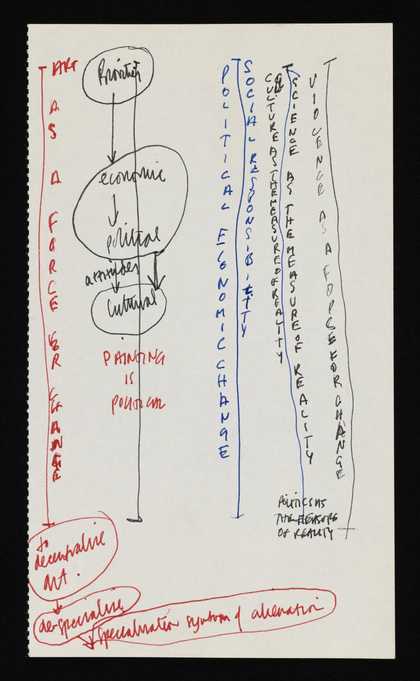 ART AS A FORCE FOR CHANGE
Priorities
economic
political
attitudes
Cultural
PAINTING
IS
POLITICAL
POLITICAL ECONOMIC CHANGE
SOCIAL RESPONSIBILITY
CULTURE AS THE MEASURE OF REALITY
SCIENCE AS THE MEASURE OF REALITY
VIOLENCE AS A FORCE FOR CHANGE
POLITICS AS
THE MEASURE
OF REALITY
to
decentralise
art.
de-specialise
specialisation symptom of alienation